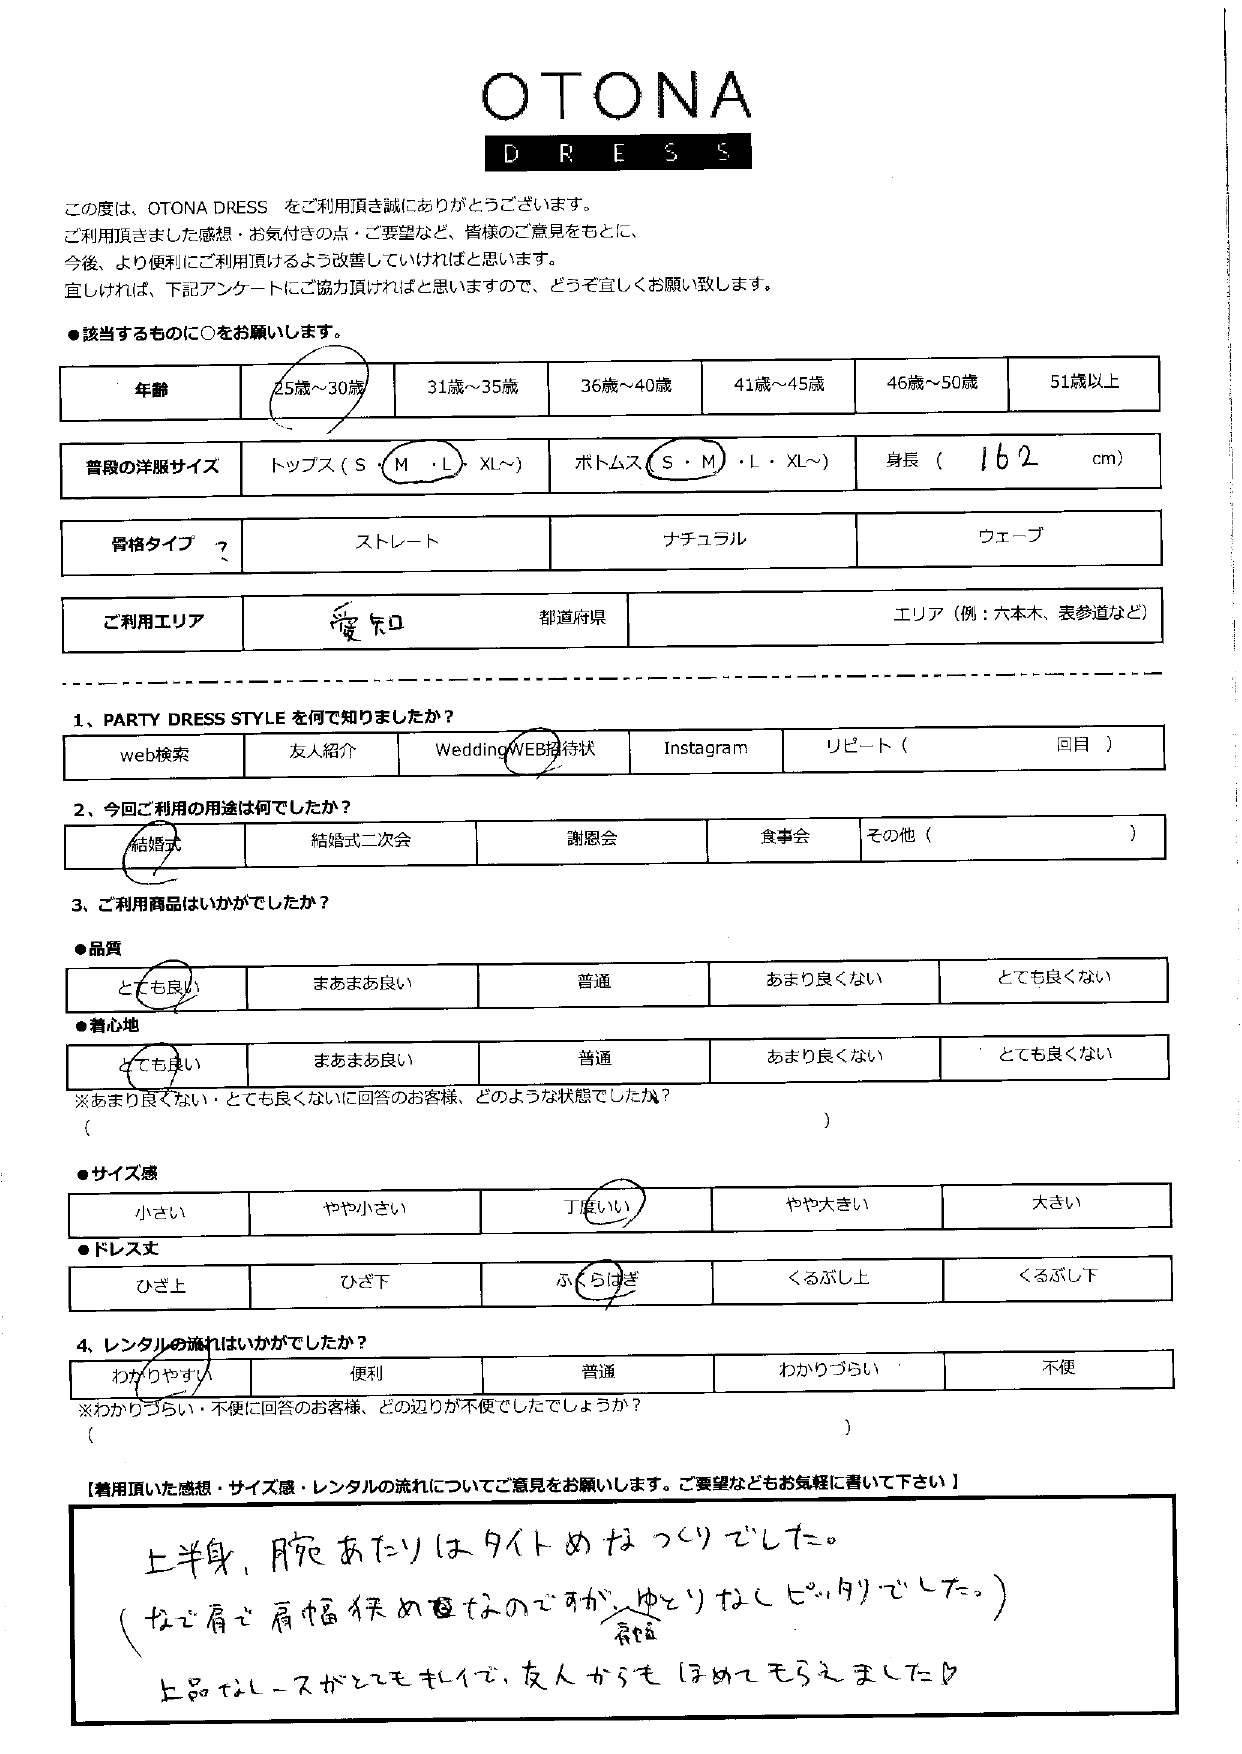 OTONA
DRESS
この度は、OTONA DRESS　をご利用頂き誠にありがとうございます。
ご利用頂きました感想・お気付きの点・ご要望など、皆様のご意見をもとに、
今後、より便利にご利用頂けるよう改善していければと思います。
宜しければ、下記アンケートにご協力頂ければと思いますので、どうぞ宜しくお願い致します。
●該当するものに〇をお願いします。
年齢 25歳～30歳 31歳～35歳 36歳～40歳 41歳～45歳 46歳～50歳 51歳以上
普段の洋服サイズ トップス ( S ・ M ・ L ・ XL～) ボトムス ( S ・ M ・ L ・ XL～) 身長 ( 162 cm)
骨格タイプ ? ストレート ナチュラル ウェーブ
ご利用エリア 愛知 都道府県 エリア（例：六本木、表参道など）
1、PARTY DRESS STYLE を何で知りましたか？
web検索 友人紹介 WeddingWEB招待状 Instagram リピート（ 回目 ）
2、今回ご利用の用途は何でしたか？
結婚式 結婚式二次会 謝恩会 食事会 その他（ ）
3、ご利用商品はいかがでしたか？
●品質
とても良い まあまあ良い 普通 あまり良くない とても良くない
●着心地
とても良い まあまあ良い 普通 あまり良くない とても良くない
※あまり良くない・とても良くないに回答のお客様、どのような状態でしたか？
( )
●サイズ感
小さい やや小さい 丁度いい やや大きい 大きい
●ドレス丈
ひざ上 ひざ下 ふくらはぎ くるぶし上 くるぶし下
4、レンタルの流れはいかがでしたか？
わかりやすい 便利 普通 わかりづらい 不便
※わかりづらい・不便に回答のお客様、どの辺りが不便でしたでしょうか？
( )
【着用頂いた感想・サイズ感・レンタルの流れについてご意見をお願いします。ご要望などもお気軽に書いて下さい 】
上半身、腕あたりはタイトめなつくりでした。
(なで肩で肩幅狭めなのですが、ゆとりなしピッタリでした。)
肩幅
上品なレースがとてもキレイで、友人からもほめてもらえました♡